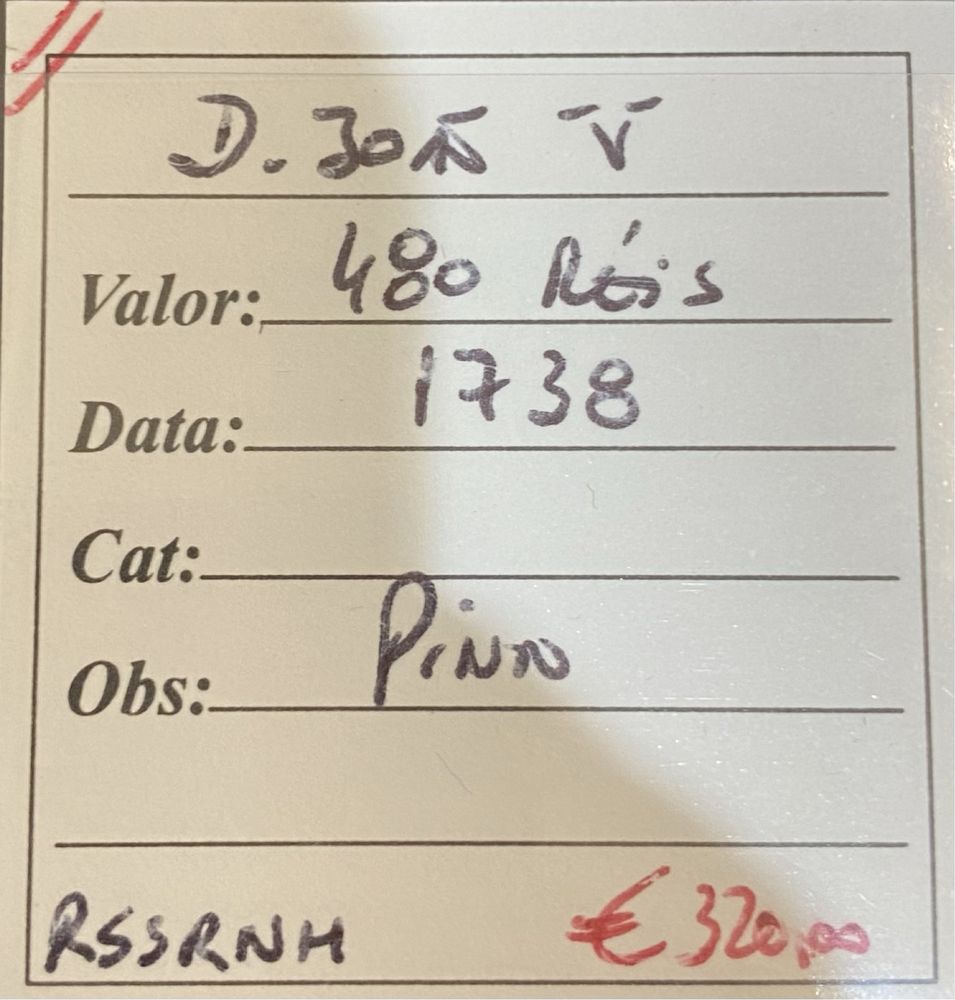 D. João V
Valor: 480 Réis
Data: 1738
Cat:
Obs: Pinto
RSSRNH €320,00